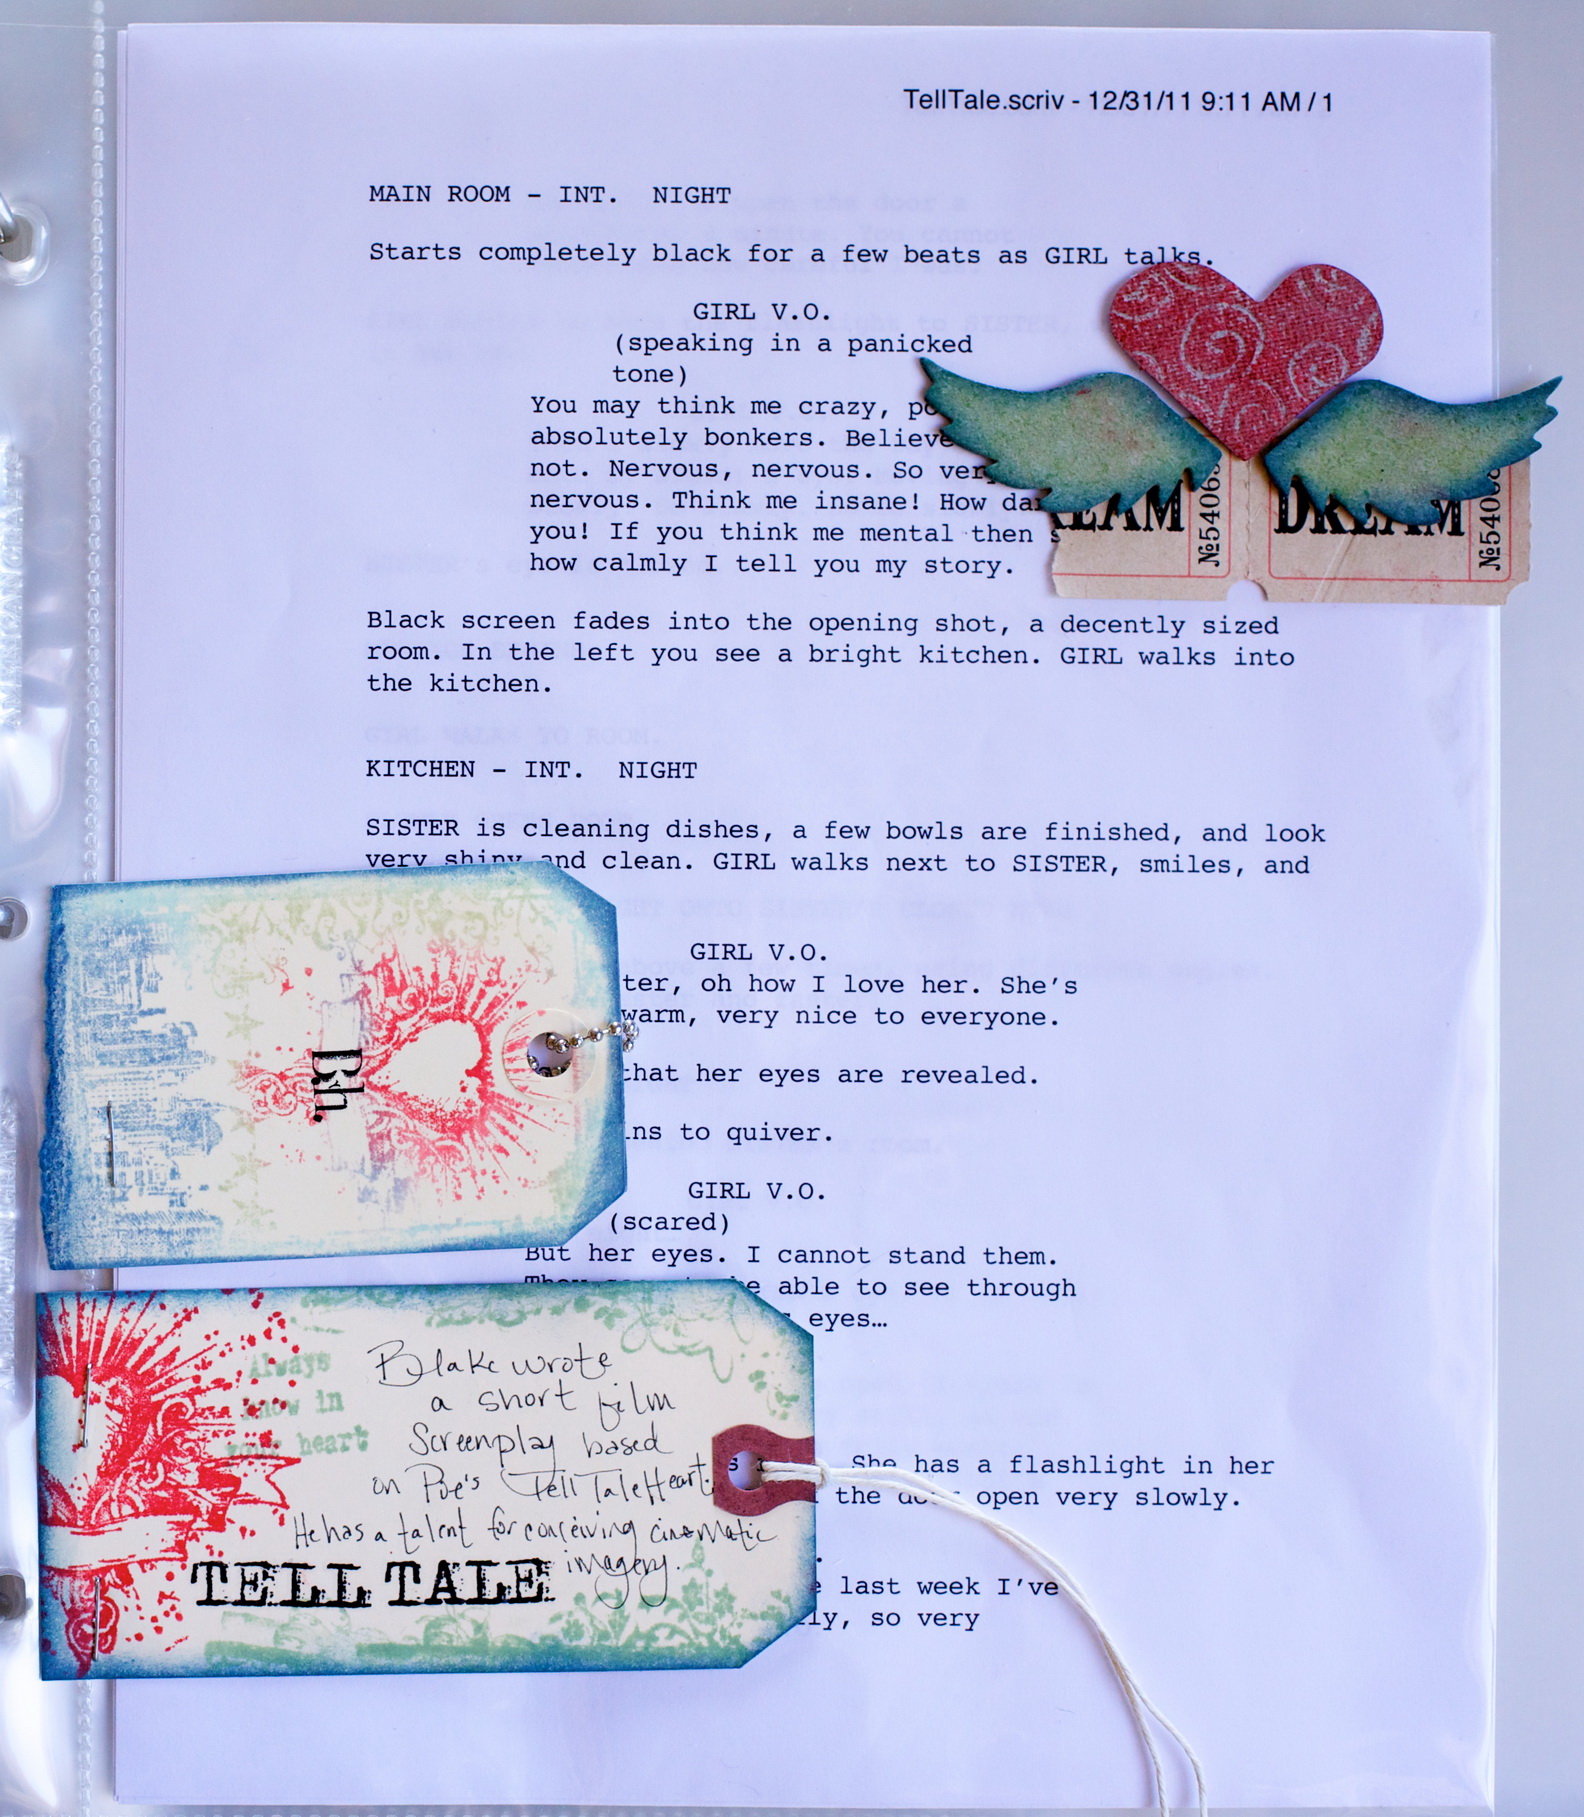 TellTale.scriv - 12/31/11 9:11 AM / 1
MAIN ROOM – INT. NIGHT
Starts completely black for a few beats as GIRL talks.
GIRL V.O.
(speaking in a panicked
tone)
You may think me crazy,
absolutely bonkers. Believe
not. Nervous, nervous. So very
nervous. Think me insane! How
you! If you think me mental then
how calmly I tell you my story.
DREAM
№5406
DREAM
№5406
Black screen fades into the opening shot, a decently sized
room. In the left you see a bright kitchen. GIRL walks into
the kitchen.
KITCHEN – INT. NIGHT
SISTER is cleaning dishes, a few bowls are finished, and look
very shiny and clean. GIRL walks next to SISTER, smiles, and
GIRL V.O.
ter, oh how I love her. She's
warm, very nice to everyone.
that her eyes are revealed.
ins to quiver.
GIRL V.O.
(scared)
But her eyes. I cannot stand them.
They be able to see through
eyes…
She has a flashlight in her
the door open very slowly.
last week I've
ly, so very
Bh.
Always
know in
your heart
Blake wrote
a short film
Screenplay based
on Poe's Tell Tale Heart.
He has a talent for conceiving cinematic
imagery.
TELL TALE